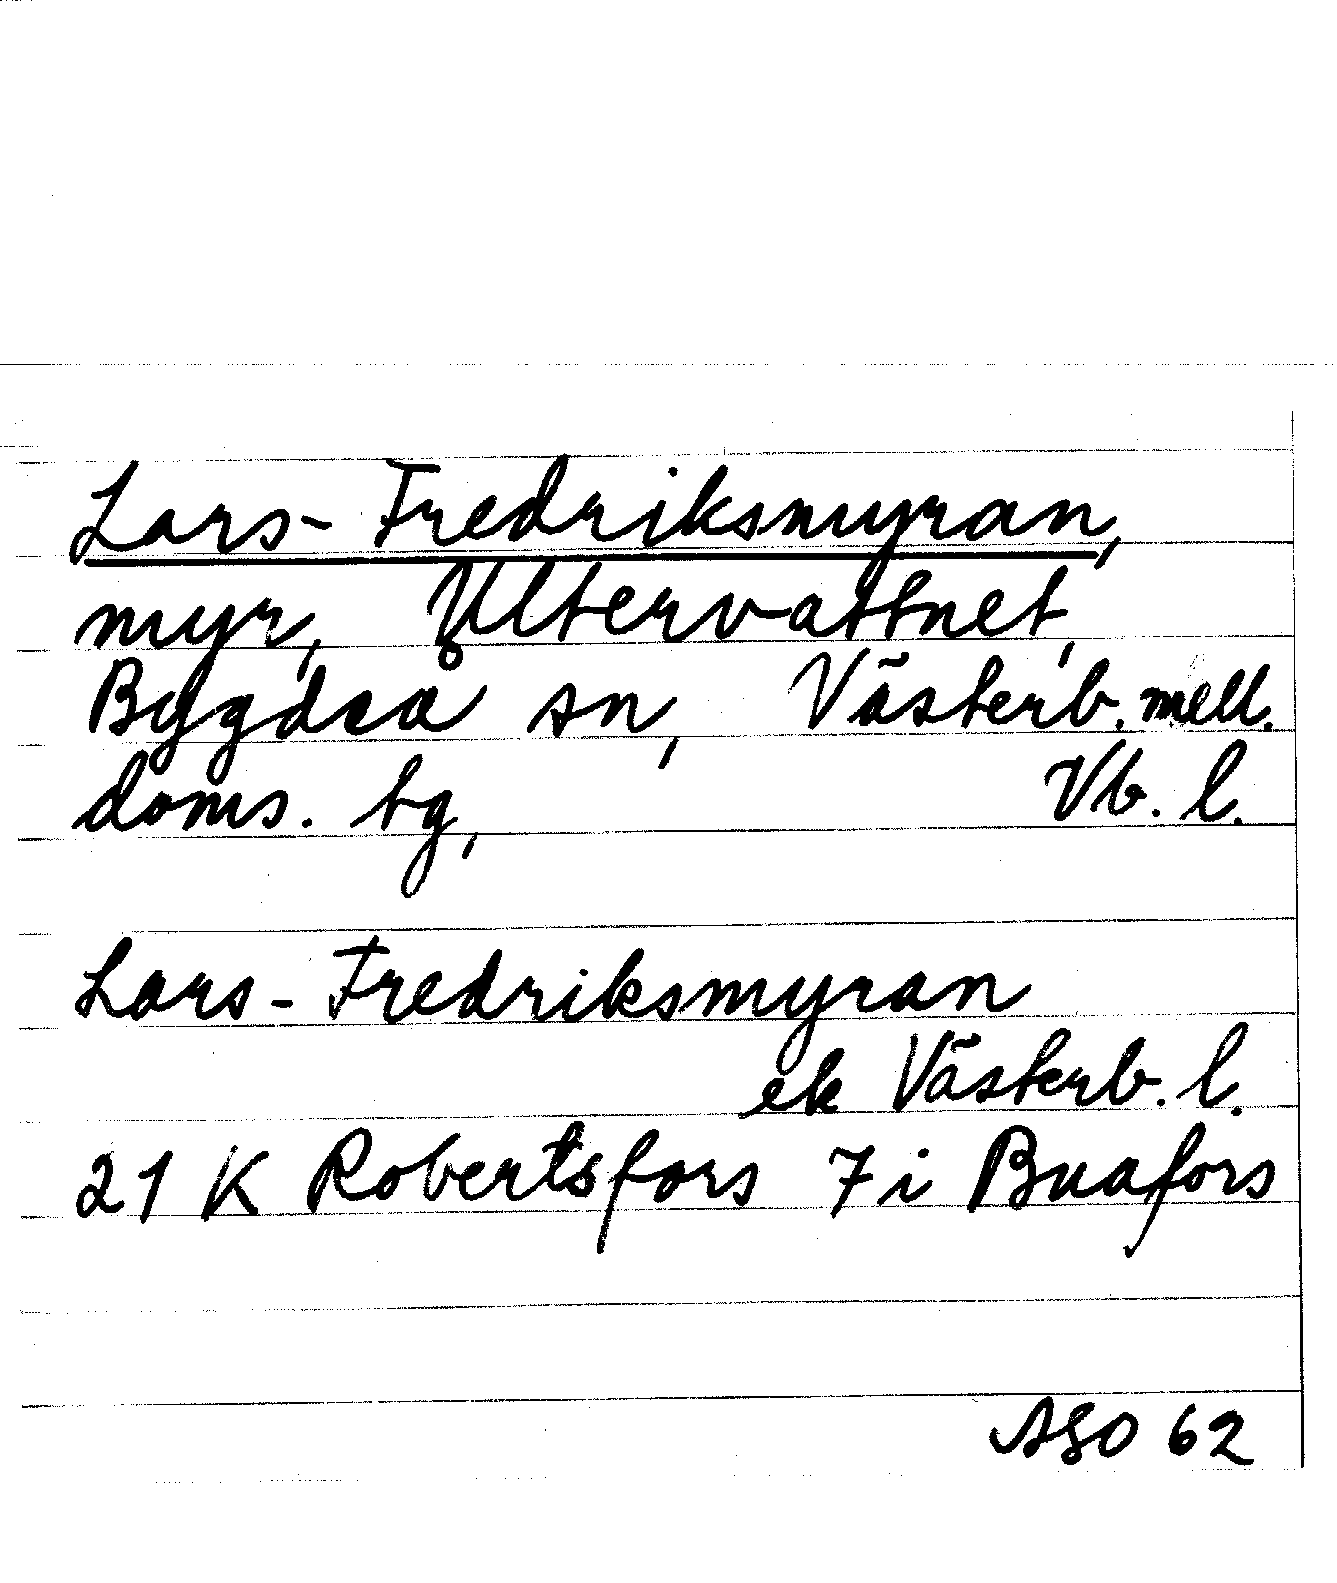 Lars-Fredriksmyran,
myr, Ultervattnet,
Bygdeå sn, Västerb. mell.
doms. tg, Vb. l.
Lars-Fredriksmyran
ek Västerb. l.
21 K Robertsfors 7 i Buafors
ASO 62